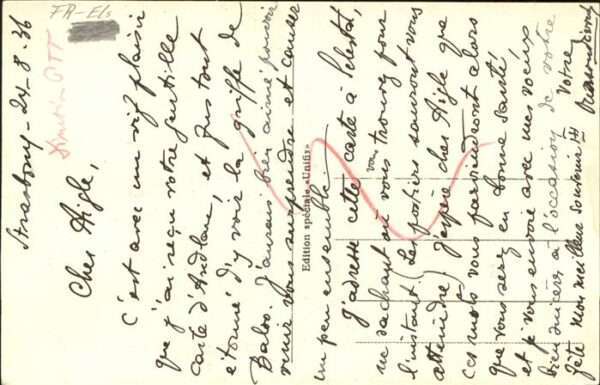 FR-Els
Strasbourg - 24-8.36
Direction PTT
Cher Aigle,
C'est avec un vif plaisir
que j'ai reçu votre gentille
carte d'Andlau, et fus tout
étonné d'y voir la griffe de
Baloo. J'aurais bien aimé pouvoir
venir vous surprendre et causer
un peu ensemble.
J'adresse cette carte à Sélestat,
ne sachant où vous trouver pour
l'instant (les postiers sauront vous
atteindre). J'espère cher Aigle que
ces mots vous parviendront alors
que vous serez en bonne santé
et je vous envoie avec mes vœux
bien sincères à l'occasion de votre
fête mon meilleur souvenir
Votre
Edition spéciale «Unifix»